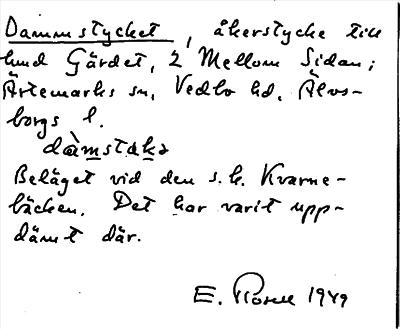 Dammstycket, åkerstycke till
hmd Gärdet, 2 Mellom Sidan;
Ärtemarks sn, Vedbo hd, Älvs-
borgs l.
dàmstaka
Beläget vid den s.k. Kvarne-
bäcken. Det har varit upp-
dämt där.
E. 1949